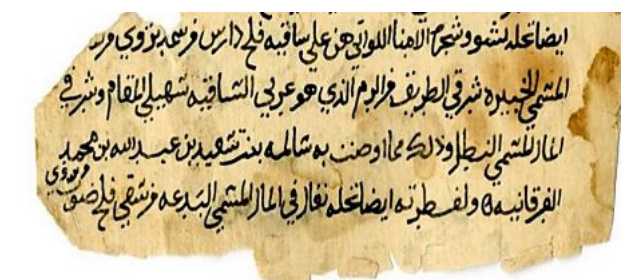 ايضا نخله نشو وشجرة الامبا اللواتي هن على ساقيه فلج دارس فرسمد نزوي
المسمي الخبيره شرقي الطريق الذي هو غربي الساقيه سهيلي المقام وشرقي
الماز المسمي وذلك مما اوصت به سالمه بنت سعيد بن عبد الله بن محمد
الفرقانيه ولفطرته ايضا نخله نغال في الماز المسمي البدعه فرسقي فلج ضوت
نزوي